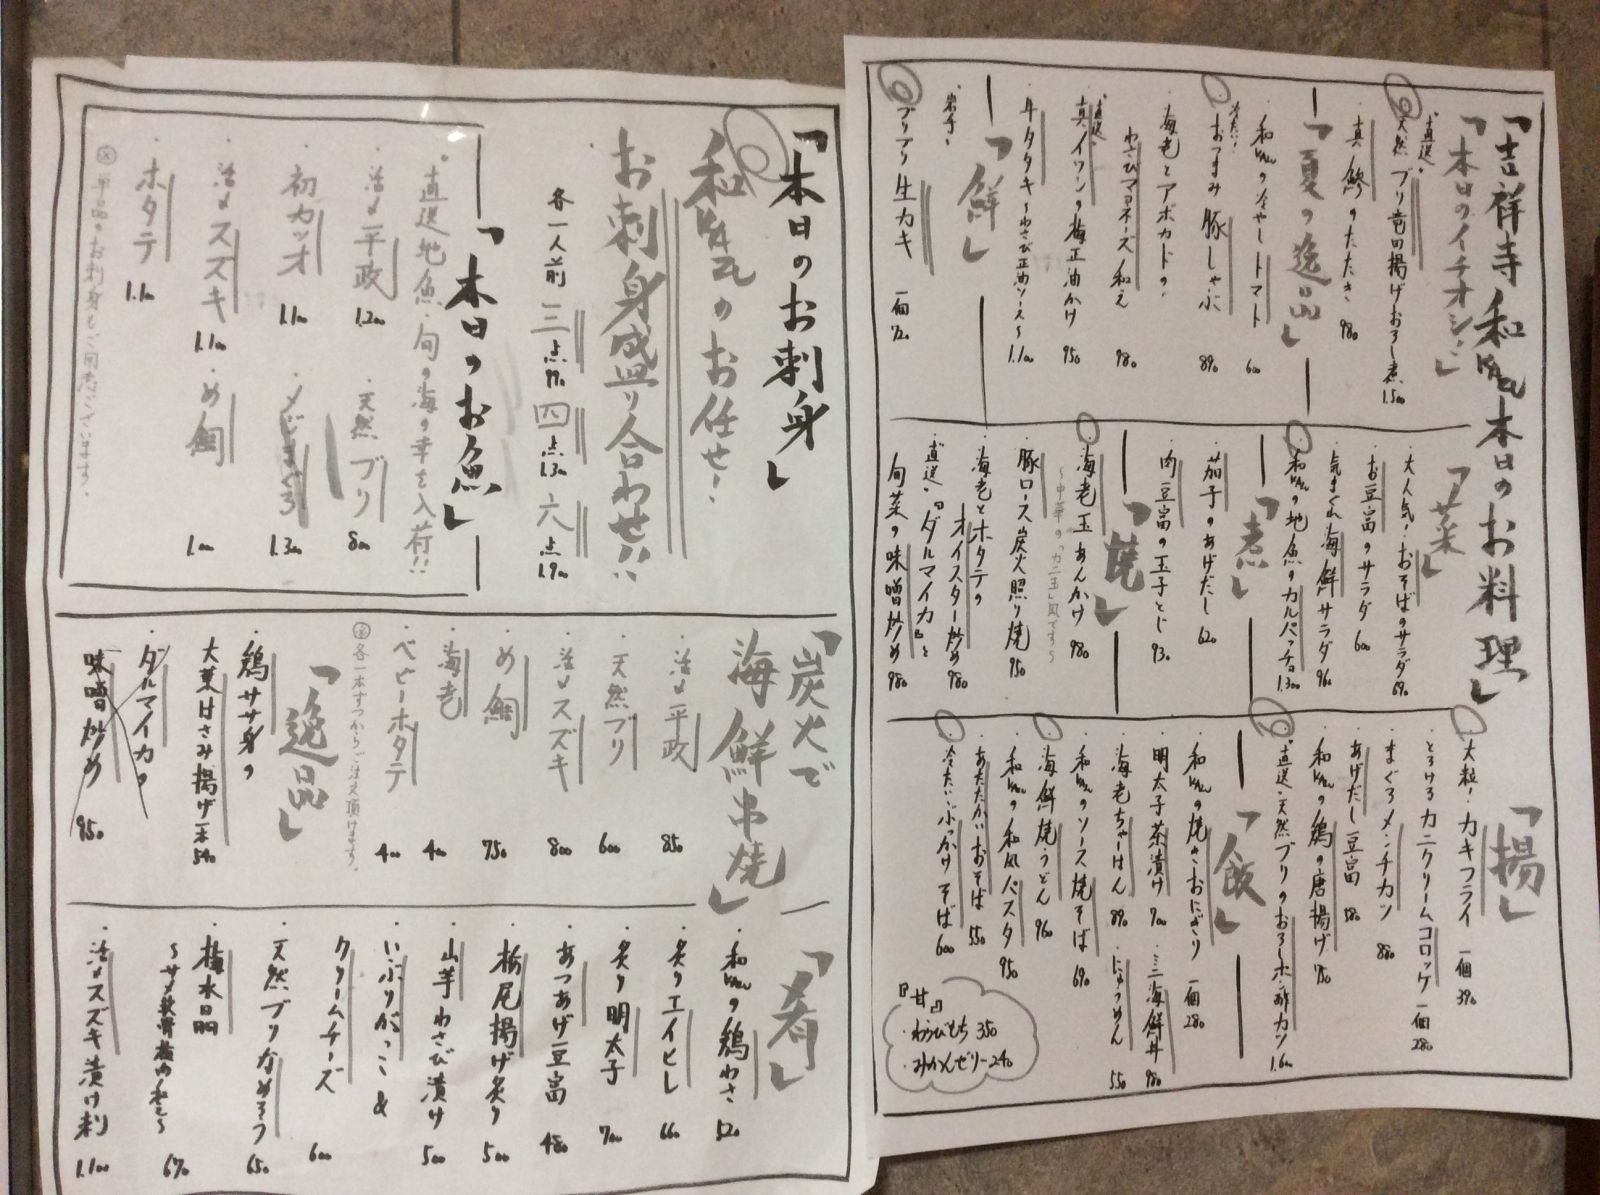 「吉祥寺 和 本日のお料理」
「本日のイチオシ!」
直送
天然 ブリ竜田揚げおろし煮 1.500
真鯵のたたき 980
「夏の逸品」
和 の冷やしトマト 600
冷たい
おつまみ豚しゃぶ 890
海老とアボカドの
わさびマヨネーズ和え 980
直送
真イワシの梅正油かけ 950
牛タタキ〜わさび正油ソース〜 1.100
「鮮」
岩手
プリプリ生カキ 一個 720
「菜」
大人気!おそばのサラダ 690
お豆富のサラダ 600
気まぐれ海鮮サラダ 960
和 の地魚のカルパッチョ 1.300
「煮」
茄子のあげだし 620
肉豆富の玉子とじ 930
「焼」
海老玉あんかけ 980
〜中華の「カニ玉」風です〜
豚ロース炭火照り焼 950
海老とホタテの
オイスター炒め 980
直送 『ダルマイカ』と
旬菜の味噌炒め 980
「揚」
大粒!カキフライ 一個 390
とろけるカニクリームコロッケ 一個 280
まぐろメンチカツ 880
あげだし豆富 580
和 の鶏の唐揚げ 750
直送 天然ブリのおろしポン酢カツ 1.600
「飯」
和 の焼きおにぎり 一個 280
明太子茶漬け 700
ミニ海鮮丼 980
海老ちゃーはん 890
にゅうめん 550
和 のソース焼そば 690
海鮮焼うどん 960
和 の和風パスタ 950
あたたかいおそば 550
冷たいぶっかけそば 600
『甘』
・わらびもち 350
・みかんゼリー 240
「本日のお刺身」
和 のお任せ!
お刺身盛り合わせ!!
各一人前 三点 990 四点 1.300 六点 1.900
「本日のお魚」
直送地魚・旬の海の幸を入荷!!
・活〆平政 1.200
・天然ブリ 800
・初カツオ 1.100
・メジまぐろ 1.300
・活〆スズキ 1.100
・め鯛 1.000
・ホタテ 1.100
※単品のお刺身もご用意ございます。
「炭火で
海鮮串焼」
・活〆平政 850
・天然ブリ 600
・活〆スズキ 800
・め鯛 750
・海老 400
・ベビーホタテ 400
※各一本ずつからご注文頂けます。
「逸品」
・鶏ササ身の
大葉はさみ揚げ一本 540
・ダルマイカの
味噌炒め 950
「肴」
・和 の鶏わさ 520
・炙りエイヒレ 660
・炙り明太子 700
・あつあげ豆富 480
・栃尾揚げ炙り 500
・山芋わさび漬け 500
・いぶりがっこ&
クリームチーズ 600
・天然ブリなめろう 650
・梅水晶
〜サメ軟骨梅肉和え〜 670
・活〆スズキ漬け刺 1.100